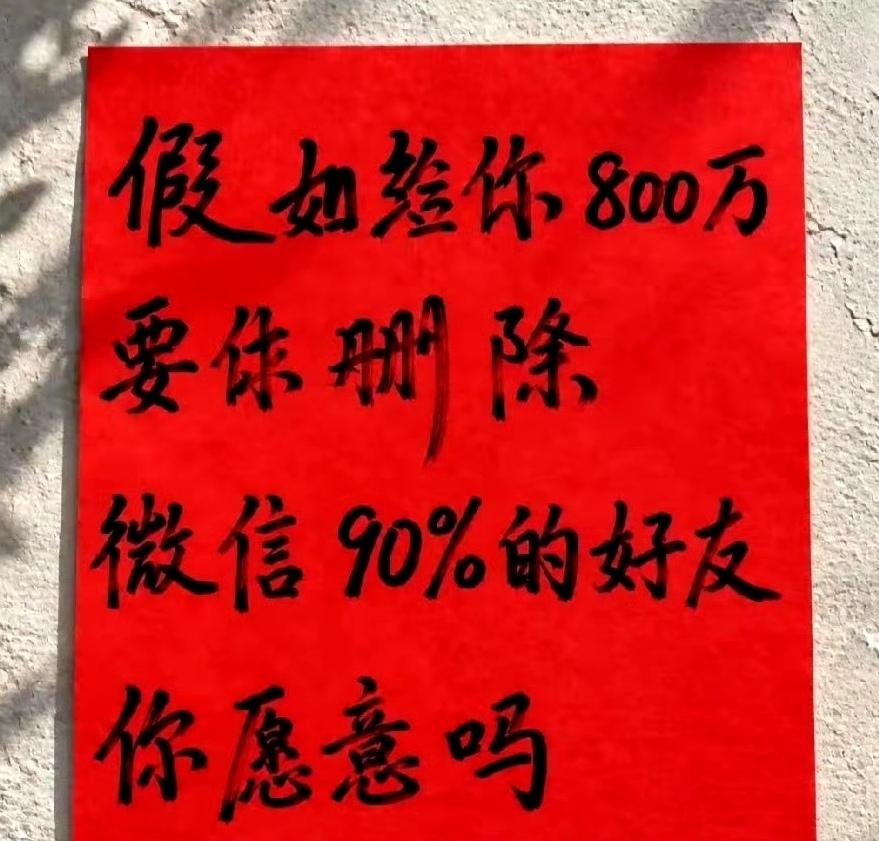 假如给你800万
要你删除
微信90%的好友
你愿意吗